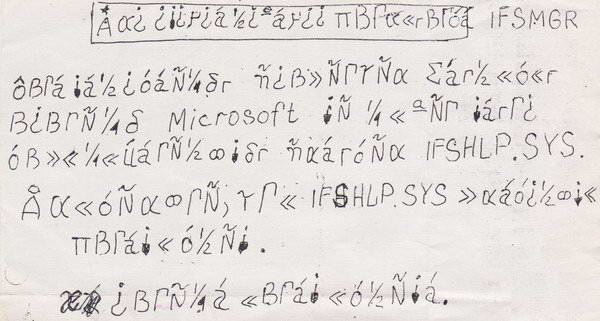 Åα¿ ¿¡¿µ¿á½¿ªáµ¿¿ πBΓα«rBΓóá IFSMGR
ôBΓá¡á½¿óáÑ¼δr ñ¿B»ÑΓτÑα Σár½«ó«r
B¿BΓÑ¼δ Microsoft ¡Ñ ¼«ªÑΓ ¡árΓ¿
óB»«¼«úáΓÑ½∞¡δr ñαáróÑα IFSHLP.SYS.
Åα«óÑα∞ΓÑ, τΓ« IFSHLP.SYS »αáó¿½∞¡«
πBΓá¡«ó½Ñ¡.
¿BΓÑ¼á «BΓá¡«ó½Ñ¡á.